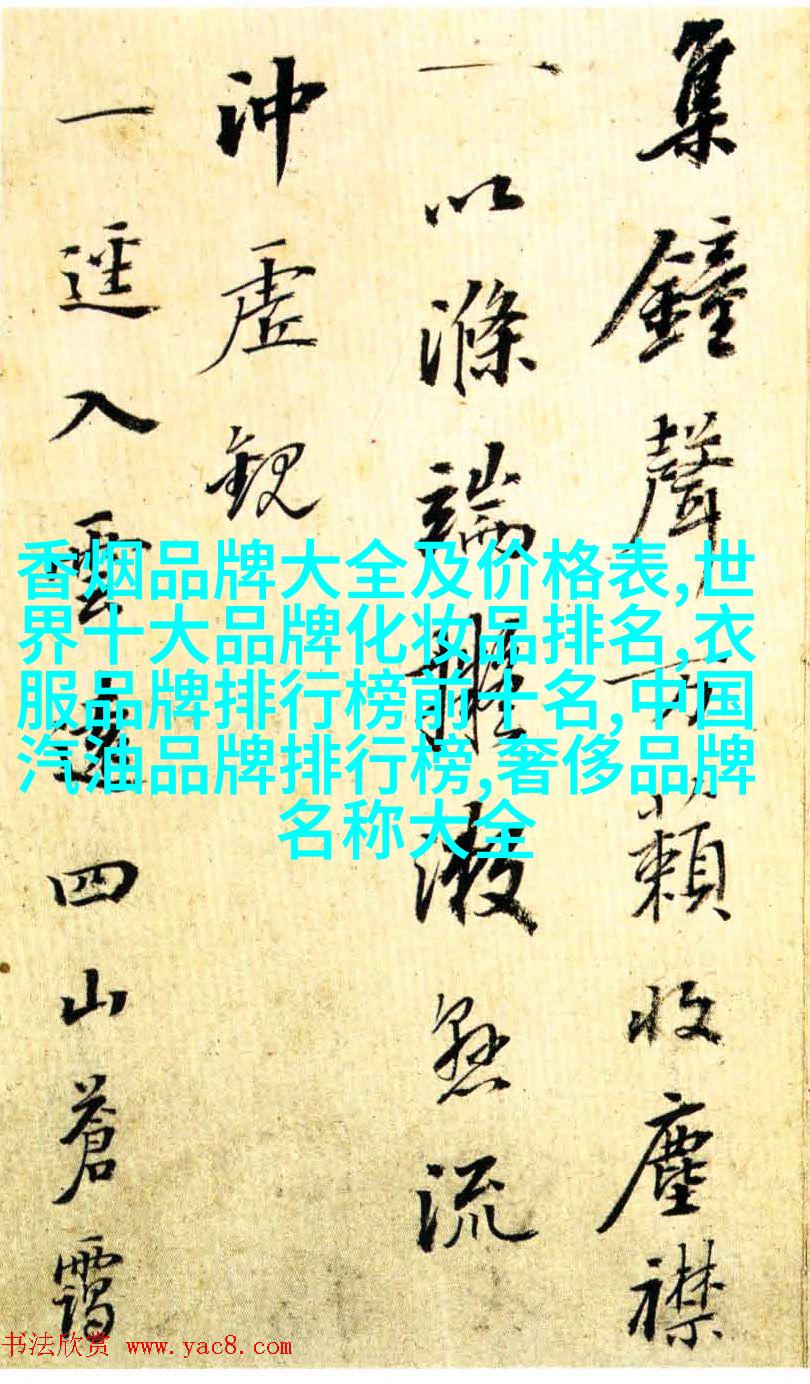 集鐘聲万籟收塵襟
一以滌端流
沖虛觀
一逕入雲四山蒼靄
香烟品牌大全及价格表,世
界十大品牌化妆品排名,衣
服品牌排行榜前十名,中国
汽油品牌排行榜,奢侈品牌
名称大全
书法欣赏 www.yac8.com